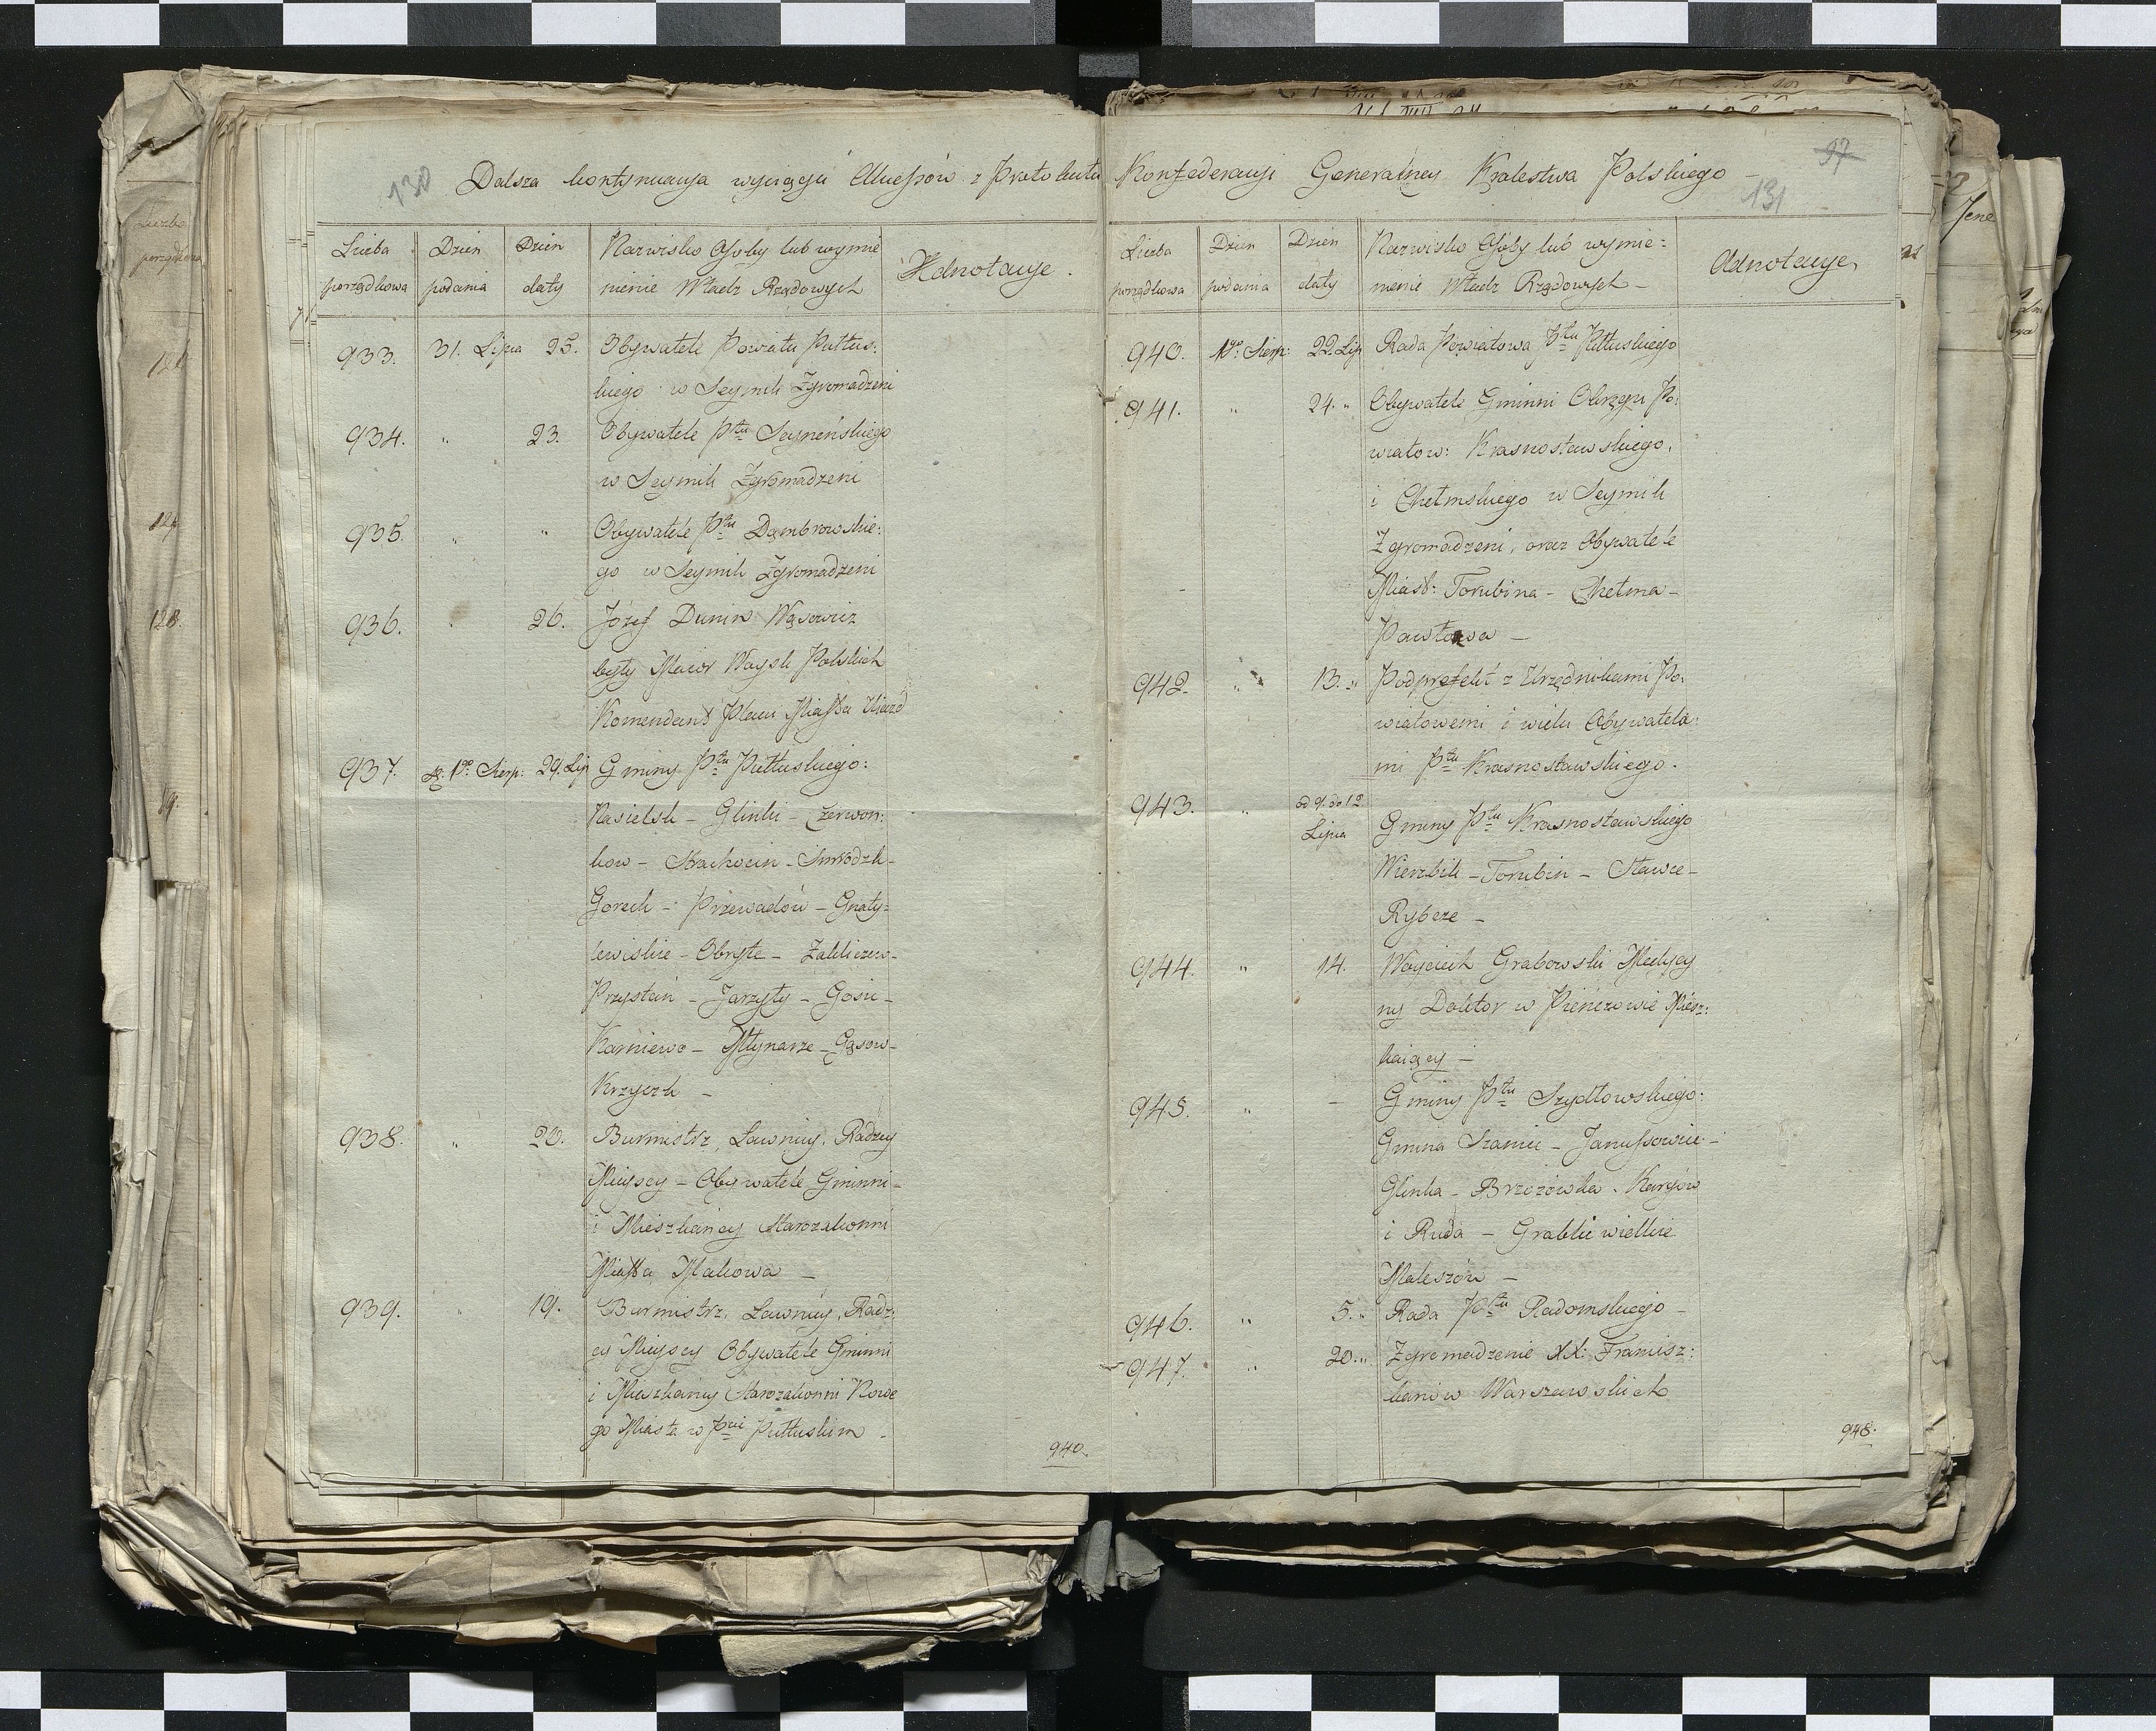 130
Dalsza kontynuacya wyciągu Akcessów z Protokułu Konfederacyi Generalney Krolestwa Polskiego –
97
131
Liczba porządkowa
Dzień podania
Dzień daty
Nazwisko Osoby lub wymie
nienie Władz Rządowych
Adnotacye.
933. 31. Lipca 25. Obywatele Powiatu Pułtus:
kiego w Seymik Zgromadzeni
934. " 23. Obywatele Ptu Seyneńskiego
w Seymik Zgromadzeni
935. " " Obywatele Ptu Dąmbrowskie:
go w Seymik Zgromadzeni
936. " 26. Józef Dunin Wąsowicz
były Maior Woysk Polskich
Komendant Placu Miasta Uiazd
937. 1go Sierp: 29. Lip Gminy Ptu Pułtuskiego:
Nasielsk – Glinki – Czerwon:
kow – Strachocin – Smrodzk –
Gorech – Przewodów – Gnaty=
lewiskie – Obryte – Zakliczew –
Przystań – Jarzyły – Gosie –
Karniewo – Młynarze – Gąsow –
Krzyczk –
938. " 20. Burmistrz, Ławnicy, Radzcy
Mieyscy – Obywatele Gminni –
i Mieszkańcy Starozakonni
Miasta Makowa –
939. " 19. Burmistrz, Ławnicy, Radz:
cy Mieyscy Obywatele Gminni
i Mieszkańcy Starozakonni Nowe
go Miasta w Pcie Pułtuskim –
940.
Liczba porządkowa
Dzień podania
Dzień daty
Nazwisko Osoby lub wymie:
nienie Władz Rządowych –
Adnotacye,
940. 1go Sierp: 22. Lip Rada Powiatowa Ptu Pułtuskiego
941. " 24. " Obywatele Gminni Okręgu Po:
wiatow: Krasnostawskiego,
i Chełmskiego w Seymik
Zgromadzeni, oraz Obywatele
Miast: Torubina – Chełma –
Pawłowa –
942. " 13. " Podprefekt z Urzędnikami Po:
wiatowemi i wielu Obywatela:
mi Ptu Krasnostawskiego.
943. " od 9. do 12
Lipca Gminy Ptu Krasnostawskiego
Wierzbik – Torubin – Stawce –
Rybcze –
944. " 14. Woyciech Grabowski Medycy
ny Doktor w Pieńczowie Miesz:
kaiący –
945. " – Gminy Ptu Szydłowskiego:
Gmina Szaniec – Janussowice –
Glinka – Brzozówka – Kargów
i Ruda – Grabki wielkie
Maleszów –
946. " 5. " Rada Ptu Radomskiego –
947. " 20. " Zgromadzenie XX: Francisz:
kanów Warszawskich
948.